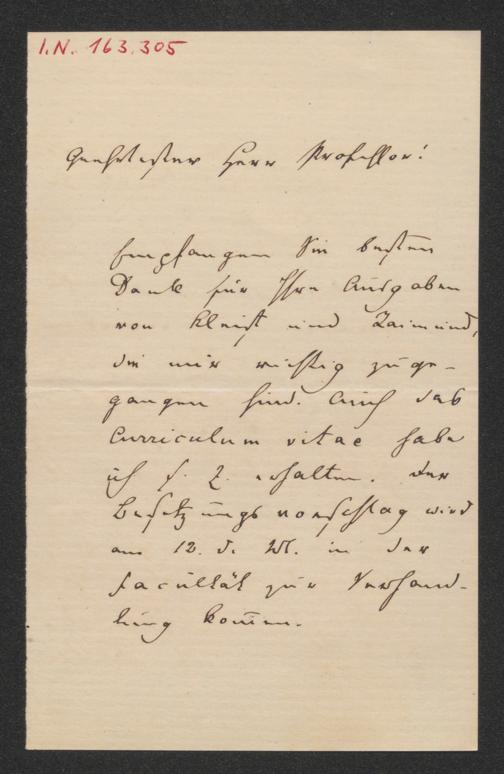 I.N. 163.305
Geehrtester Herr Professor!
Empfangen Sie besten
Dank für Ihre Ausgaben
von Kleist und Raimund,
die mir richtig zuge-
gangen sind. Auch das
Curriculum vitae habe
ich s. Z. erhalten. Der
Besetzungsvorschlag wird
am 12. d. Mt. in der
Facultät zur Verhand-
lung kom̄en.